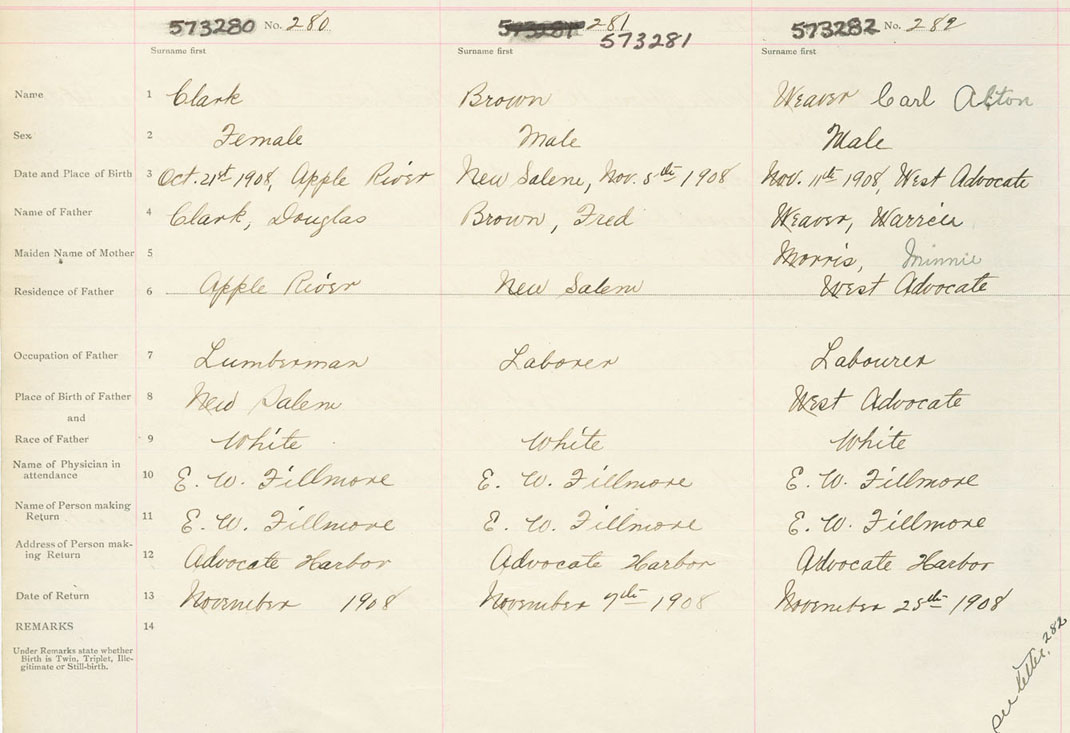 573280 No. 280 281 573282 No. 282
573281
Surname first Surname first Surname first
Name 1 Clark Brown Weaver Carl Alton
Sex 2 Female Male Male
Date and Place of Birth 3 Oct. 21st 1908, Apple River New Salem, Nov. 5th 1908 Nov. 11th 1908, West Advocate
Name of Father 4 Clark, Douglas Brown, Fred Weaver, Warren
Maiden Name of Mother 5 Morris, Minnie
Residence of Father 6 Apple River New Salem West Advocate
Occupation of Father 7 Lumberman Laborer Labourer
Place of Birth of Father 8 New Salem West Advocate
and
Race of Father 9 White White White
Name of Physician in
attendance 10 E. W. Fillmore E. W. Fillmore E. W. Fillmore
Name of Person making
Return 11 E. W. Fillmore E. W. Fillmore E. W. Fillmore
Address of Person mak-
ing Return 12 Advocate Harbor Advocate Harbor Advocate Harbor
Date of Return 13 November 1908 November 7th 1908 November 25th 1908
REMARKS 14
Under Remarks state whether
Birth is Twin, Triplet, Ille-
gitimate or Still-birth.
see letter. 282